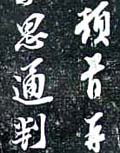 頓首再
思通判